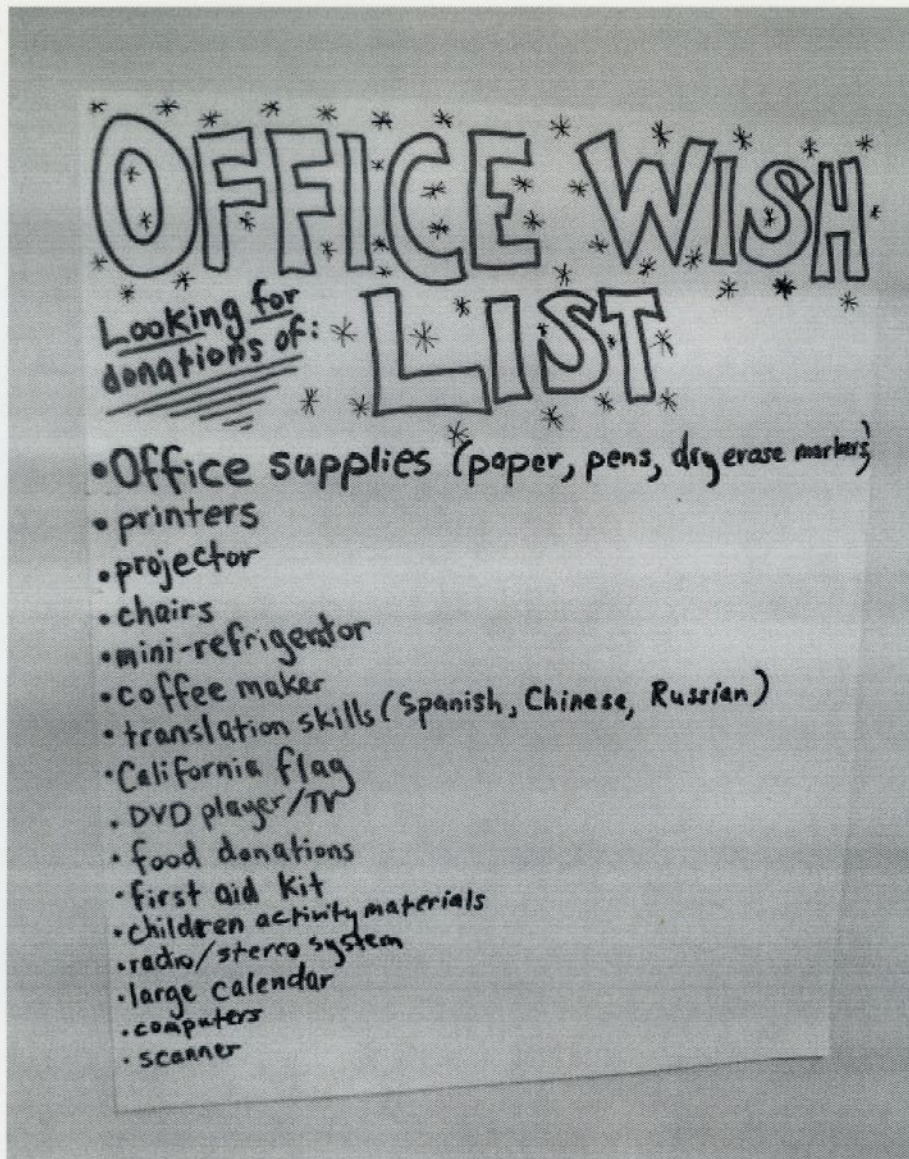 OFFICE WISH
LIST
Looking for
donations of:
•Office supplies (paper, pens, dry erase markers)
•printers
•projector
•chairs
•mini-refrigerator
•coffee maker
•translation skills (Spanish, Chinese, Russian)
•California flag
•DVD player/TV
•food donations
•first aid kit
•children activity materials
•radio/stereo system
•large calendar
•computers
•scanner